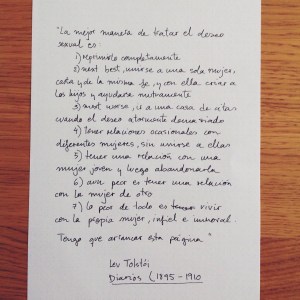 "La mejor manera de tratar el deseo
sexual es:
1) reprimirlo completamente
2) next best, unirse a una sola mujer,
casta y de la misma fe, y con ella criar a
los hijos y ayudarse mutuamente
3) next worse, ir a una casa de citas
cuando el deseo atormente demasiado
4) tener relaciones ocasionales con
diferentes mujeres, sin unirse a ellas
5) tener una relación con una
mujer joven y luego abandonarla
6) aún peor es tener una relación
con la mujer de otro
7) lo peor de todo es vivir
con la propia mujer, infiel e inmoral.
Tengo que arrancar esta página"
Lev Tolstói
Diarios (1895-1910